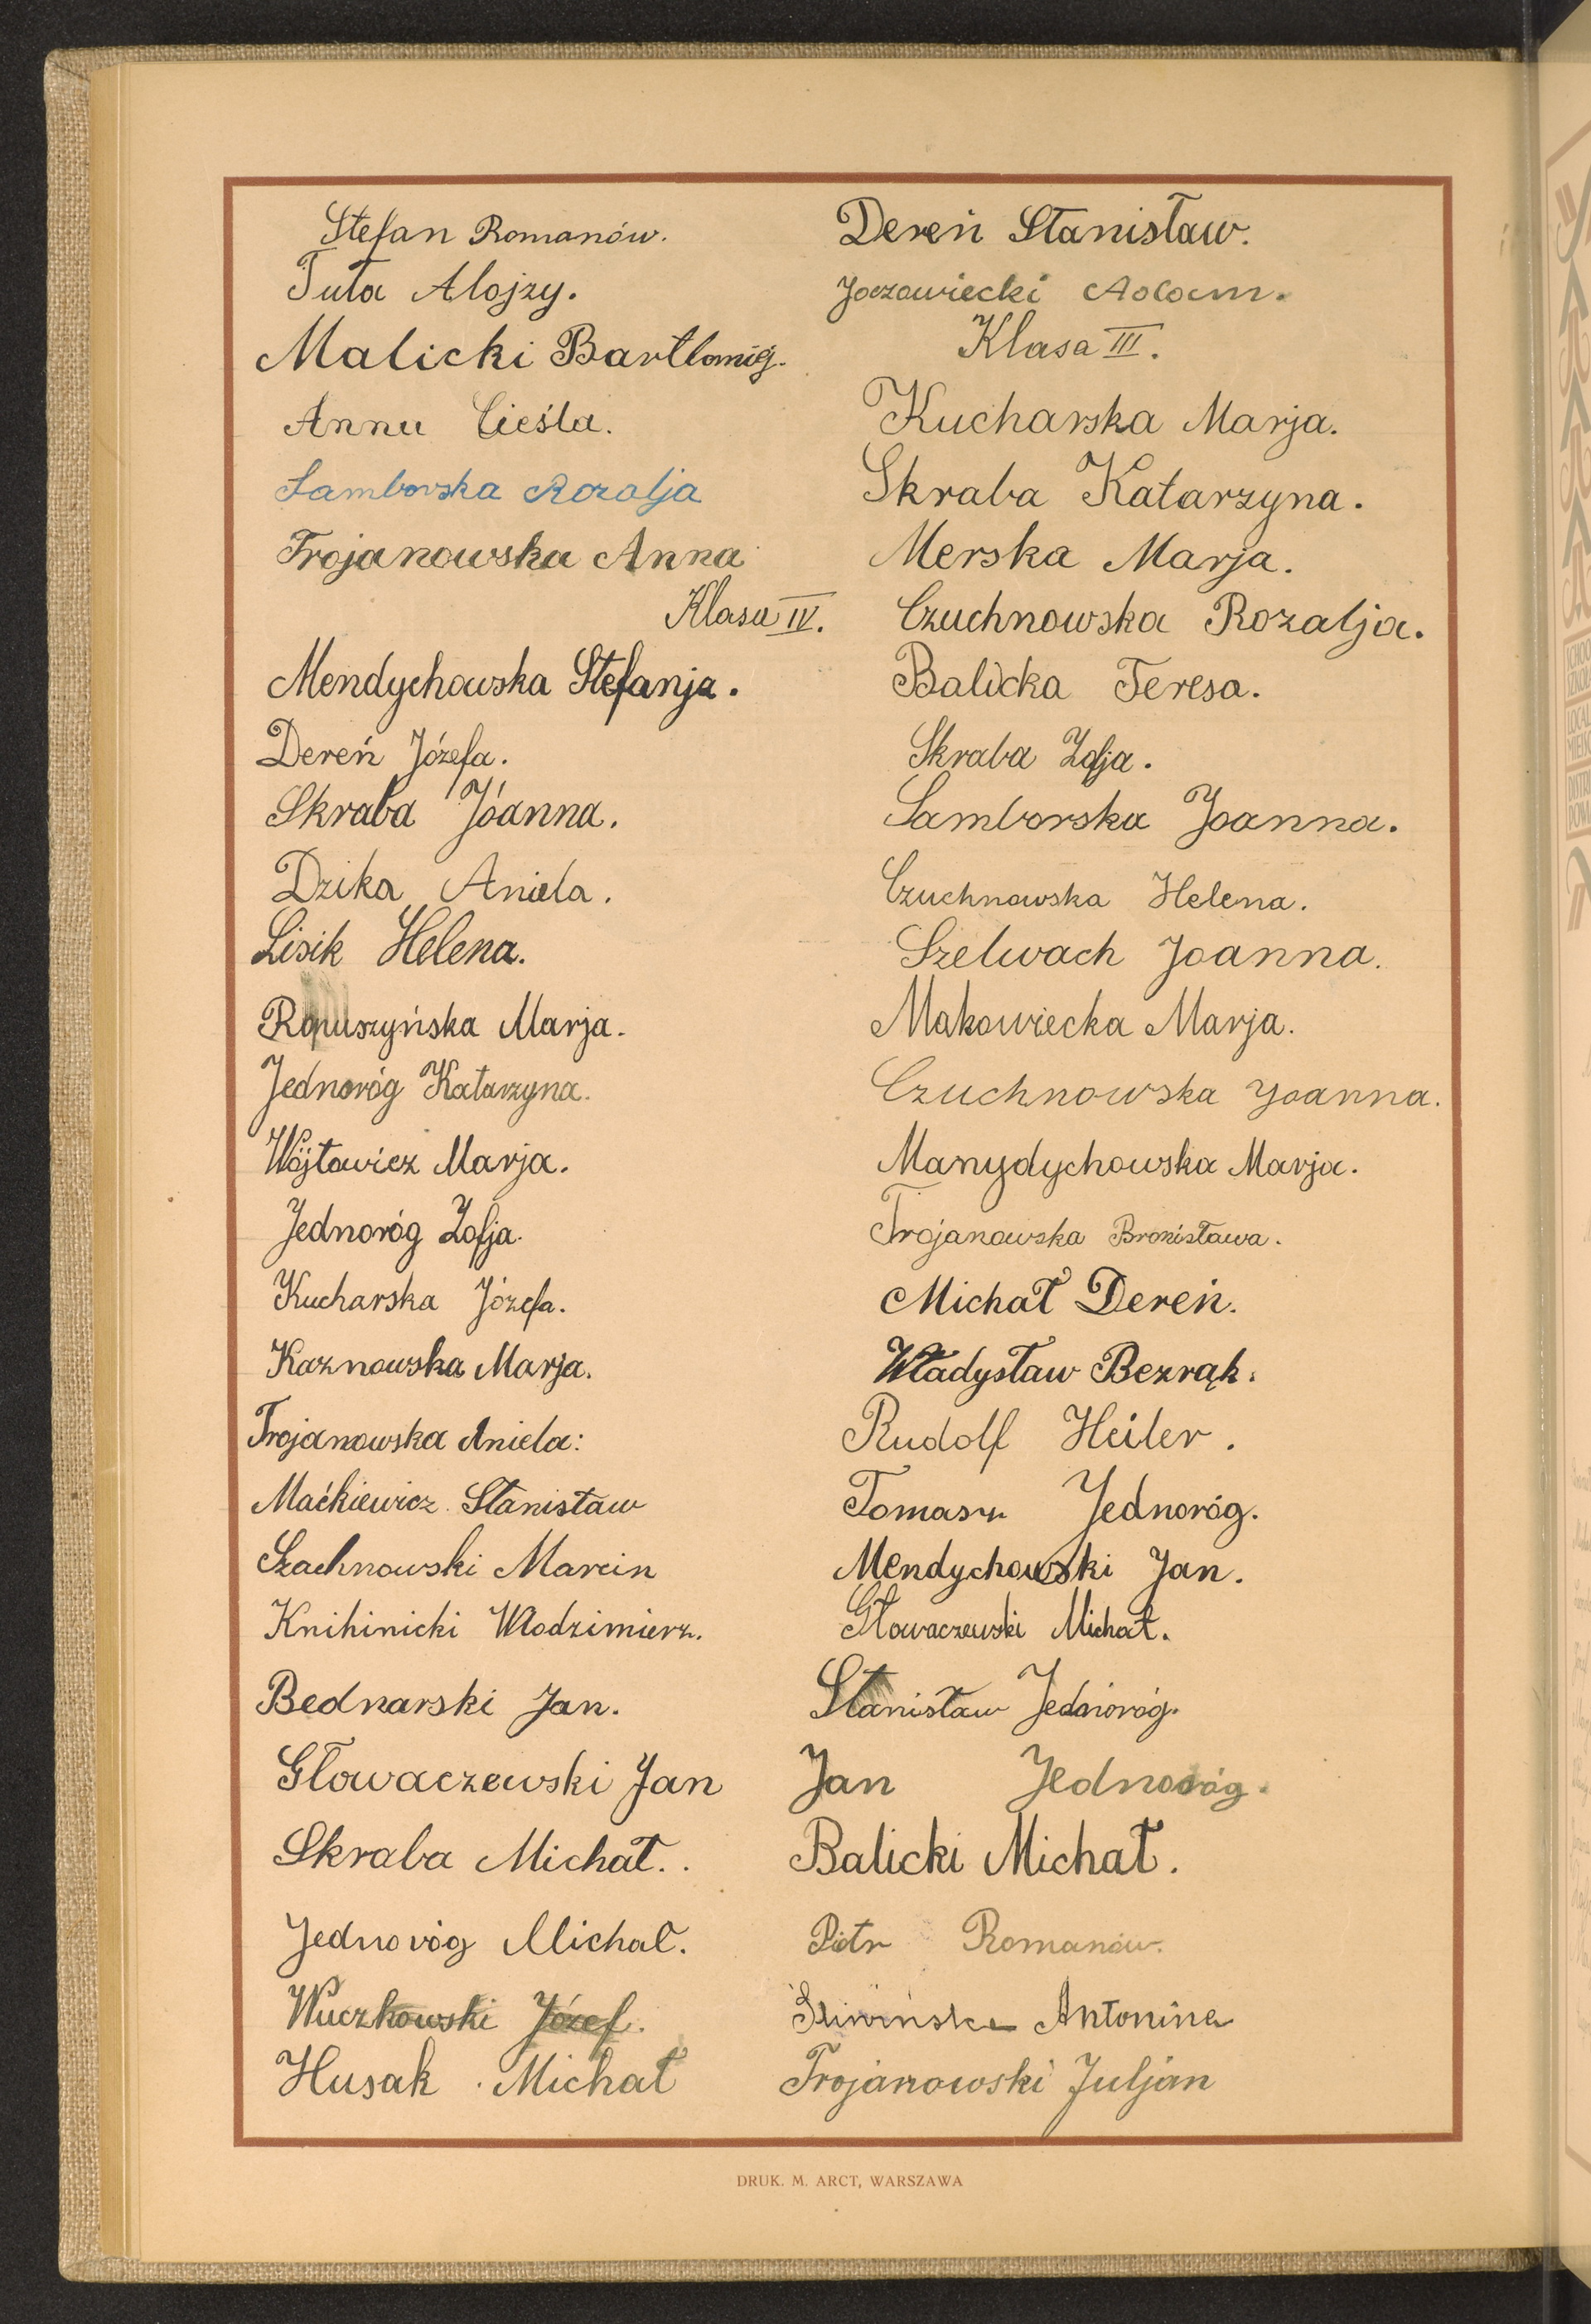 Stefan Romanów.
Tuła Alojzy.
Malicki Bartłomiej.
Anna Cieśla.
Samborska Rozalja
Trojanowska Anna
Klasa IV.
Mendychowska Stefanja.
Dereń Józefa.
Skraba Jóanna.
Dzika Aniela.
Lisik Helena.
Ropuszyńska Marja.
Jednoróg Katarzyna.
Wójtowicz Marja.
Jednoróg Zofja.
Kucharska Józefa.
Kaznowska Marja.
Trojanowska Aniela:
Maćkiewicz Stanisław
Szachnowski Marcin
Knihinicki Włodzimierz.
Bednarski Jan.
Głowaczewski Jan
Skraba Michał.
Jednoróg Michał.
Wuczkowski Józef.
Husak Michał
Dereń Stanisław.
Adam.
Klasa III.
Kucharska Marja.
Skraba Katarzyna.
Merska Marja.
Czuchnowska Rozalja.
Balicka Teresa.
Skraba Zofja.
Samborska Joanna.
Czuchnowska Helena.
Szelwach Joanna.
Makowiecka Marja.
Czuchnowska Joanna.
Manydychowska Marja.
Trojanowska Bronisława.
Michał Dereń.
Władysław Bezrąk.
Rudolf Heiler.
Tomasz Jednoróg.
Mendychowski Jan.
Głowaczewski Michał.
Stanisław Jednoróg.
Jan Jednoróg.
Balicki Michał.
Piotr Romanów.
Śliwińska Antonina
Trojanowski Juljan
DRUK. M. ARCT, WARSZAWA